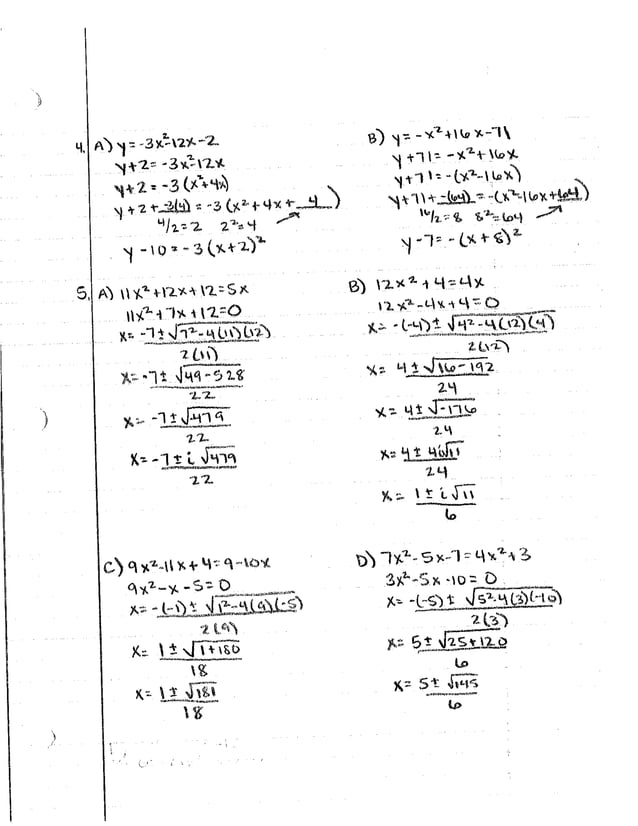 4. A) y = -3x²-12x-2
y+2 = -3x²-12x
y+2 = -3(x²+4x)
y+2+-3(4) = -3(x²+4x+ 4 )
4/2=2 2²=4
y-10 = -3(x+2)²
B) y = -x²+16x-71
y+71 = -x²+16x
y+71 = -(x²-16x)
y+71+-(64) = -(x²-16x+64)
16/2=8 8²=64
y-7 = -(x+8)²
5. A) 11x²+12x+12=5x
11x²+7x+12=0
x = -7±√7²-4(11)(12)
2(11)
x = -7±√49-528
22
x = -7±√-479
22
x = -7±i√479
22
B) 12x²+4=4x
12x²-4x+4=0
x = -(-4)±√4²-4(12)(4)
2(12)
x = 4±√16-192
24
x = 4±√-176
24
x = 4±4i√11
24
x = 1±i√11
6
C) 9x²-11x+4=9-10x
9x²-x-5=0
x = -(-1)±√1²-4(9)(-5)
2(9)
x = 1±√1+180
18
x = 1±√181
18
D) 7x²-5x-7=4x²+3
3x²-5x-10=0
x = -(-5)±√5²-4(3)(-10)
2(3)
x = 5±√25+120
6
x = 5±√145
6